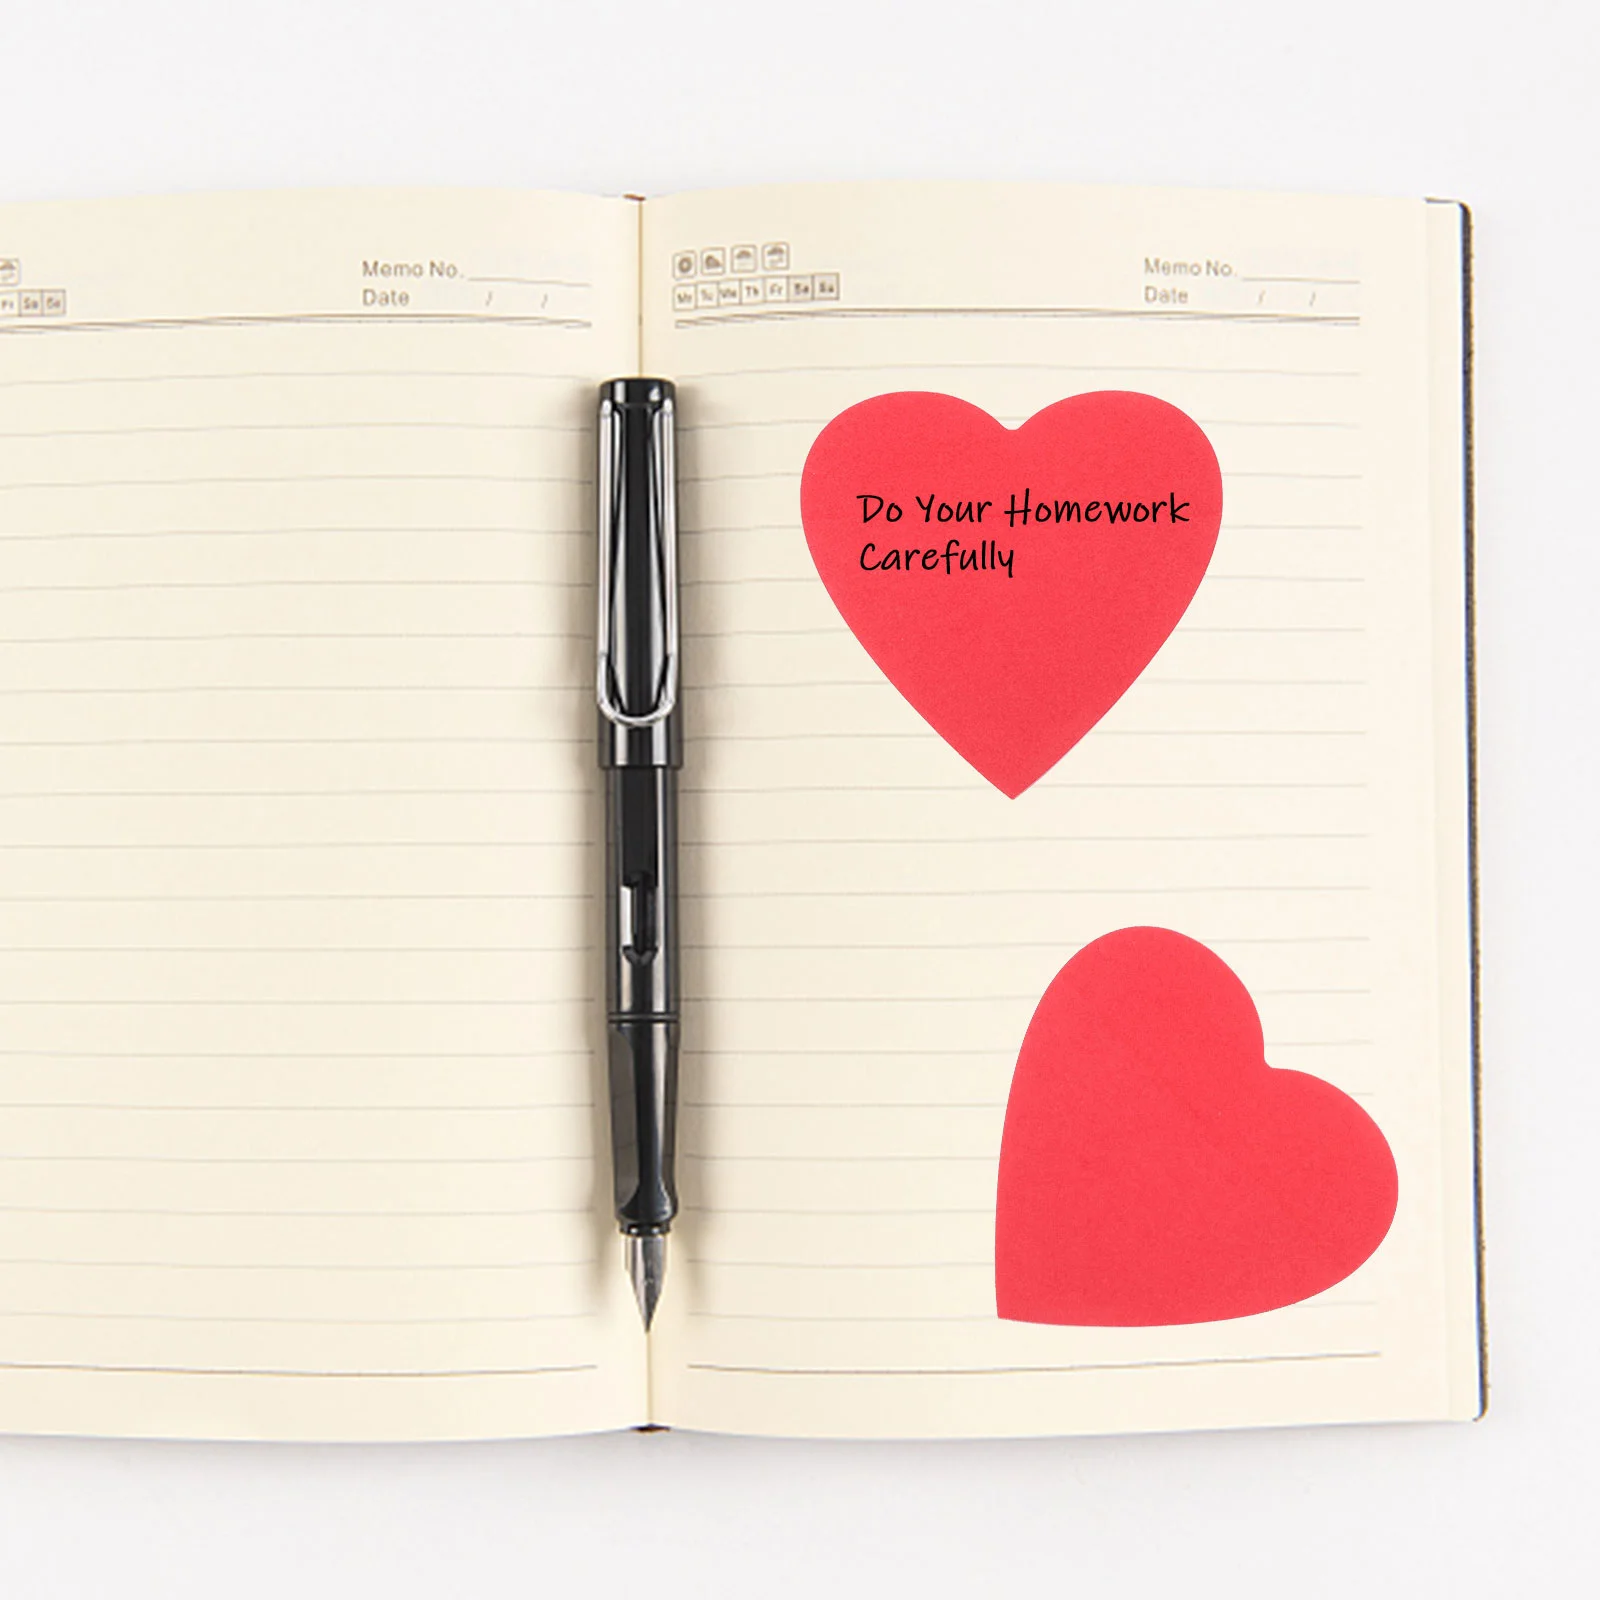 Memo No.
Date / /
Sa
Memo No.
Tu We Th Fr Sa Su
Date / /
Do Your Homework
Carefully